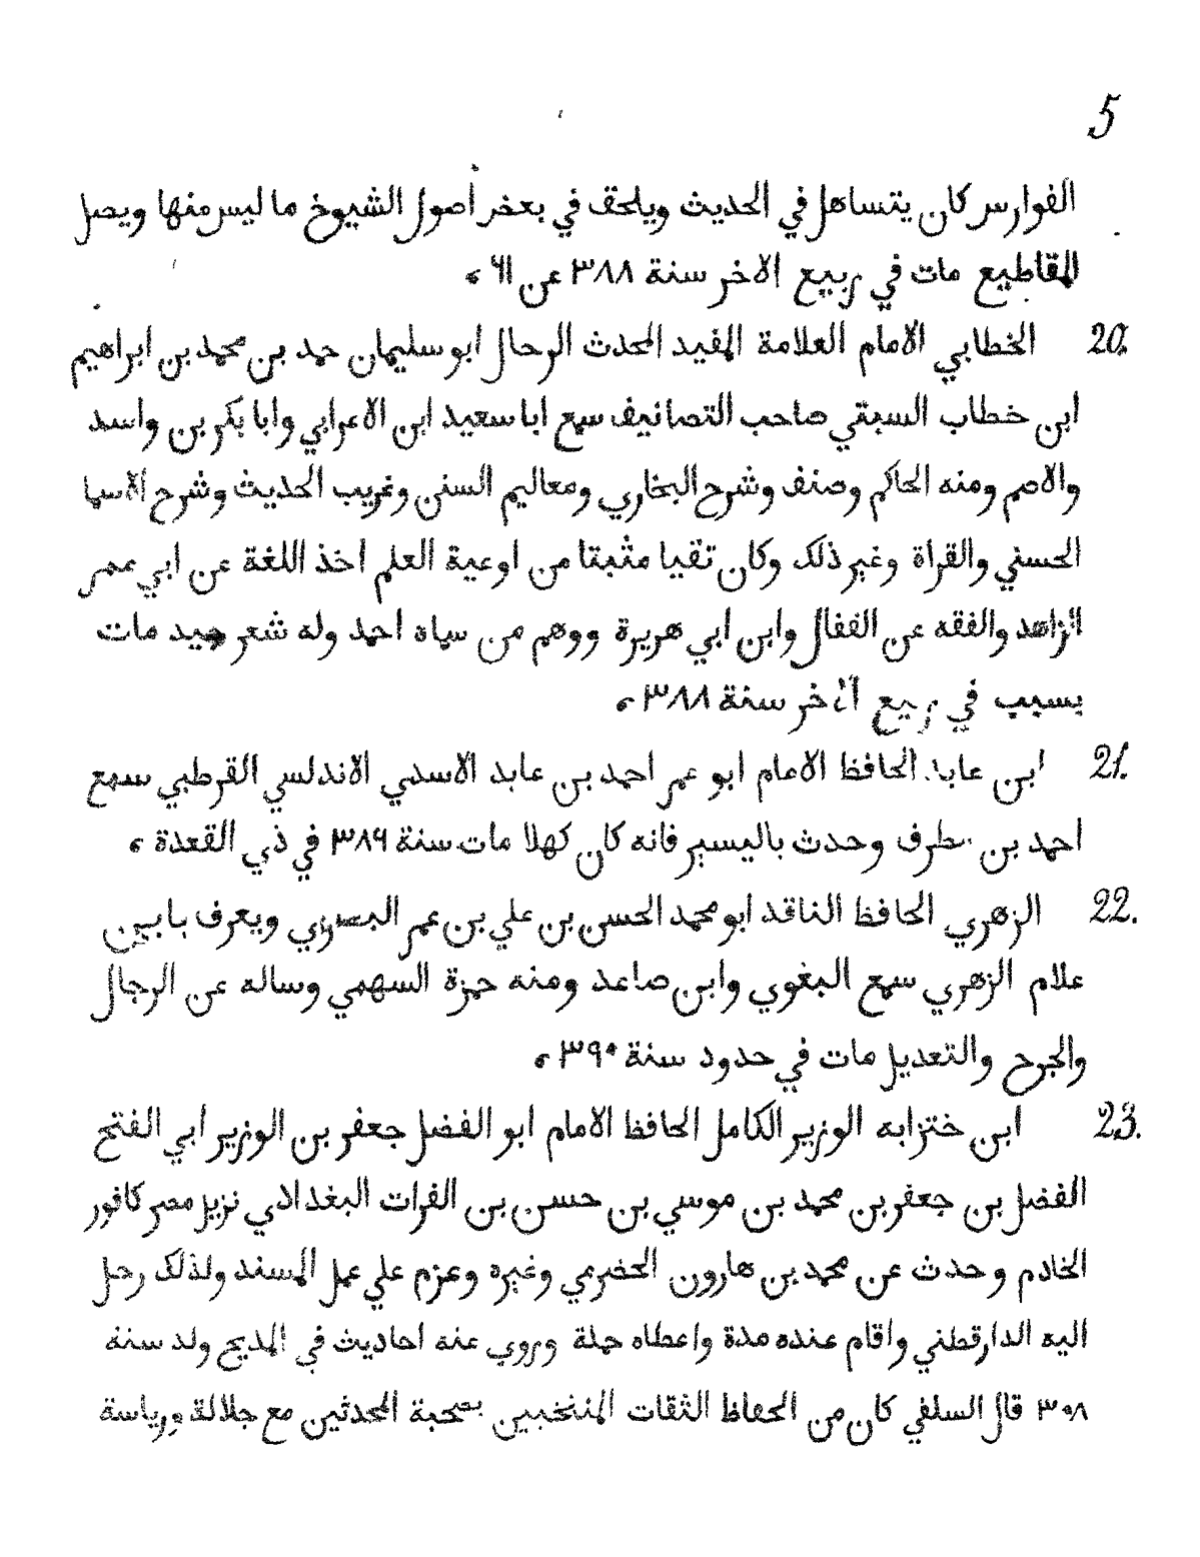 5
الفوارس كان يتساهل في الحديث ويلحق في بعض أصول الشيوخ ما ليس منها ويصل
المقاطيع مات في ربيع الاخر سنة ٣٨٨ عن ٦١
20. الخطابي الامام العلامة المفيد المحدث الرحال ابو سليمان حمد بن محمد بن ابراهيم
ابن خطاب السبتي صاحب التصانيف سمع ابا سعيد ابن الاعرابي وابا بكر بن واسد
والاصم ومنه الحاكم وصنف وشرح البخاري ومعاليم السنن وغريب الحديث وشرح الاسما
الحسني والقراة وغير ذلك وكان تقيا مثبتا من اوعية العلم اخذ اللغة عن ابي عمر
الزاهد والفقه عن القفال وابن ابي هريرة ووهم من سماه احمد وله شعر جيد مات
بسبب في ربيع الاخر سنة ٣٨٨
21. ابن عابد الحافظ الامام ابو عمر احمد بن عابد الاسدي الاندلسي القرطبي سمع
احمد بن مطرف وحدث باليسير فانه كان كهلا مات سنة ٣٨٩ في ذي القعدة
22. الزهري الحافظ الناقد ابو محمد الحسن بن علي بن عمر البصري ويعرف بابن
علام الزهري سمع البغوي وابن صاعد ومنه حمزة السهمي وساله عن الرجال
والجرح والتعديل مات في حدود سنة ٣٩٠
23. ابن ختزابه الوزير الكامل الحافظ الامام ابو الفضل جعفر بن الوزير ابي الفتح
الفضل بن جعفر بن محمد بن موسي بن حسن بن الفرات البغدادي نزيل مصر كافور
الخادم وحدث عن محمد بن هارون الحضرمي وغيره وعزم علي عمل المسند ولذلك رحل
اليه الدارقطني واقام عنده مدة واعطاه جملة وروي عنه احاديث في المديح ولد سنة
٣٠٨ قال السلفي كان من الحفاظ الثقات المنتخبين بصحبة المحدثين مع جلالة ورياسة